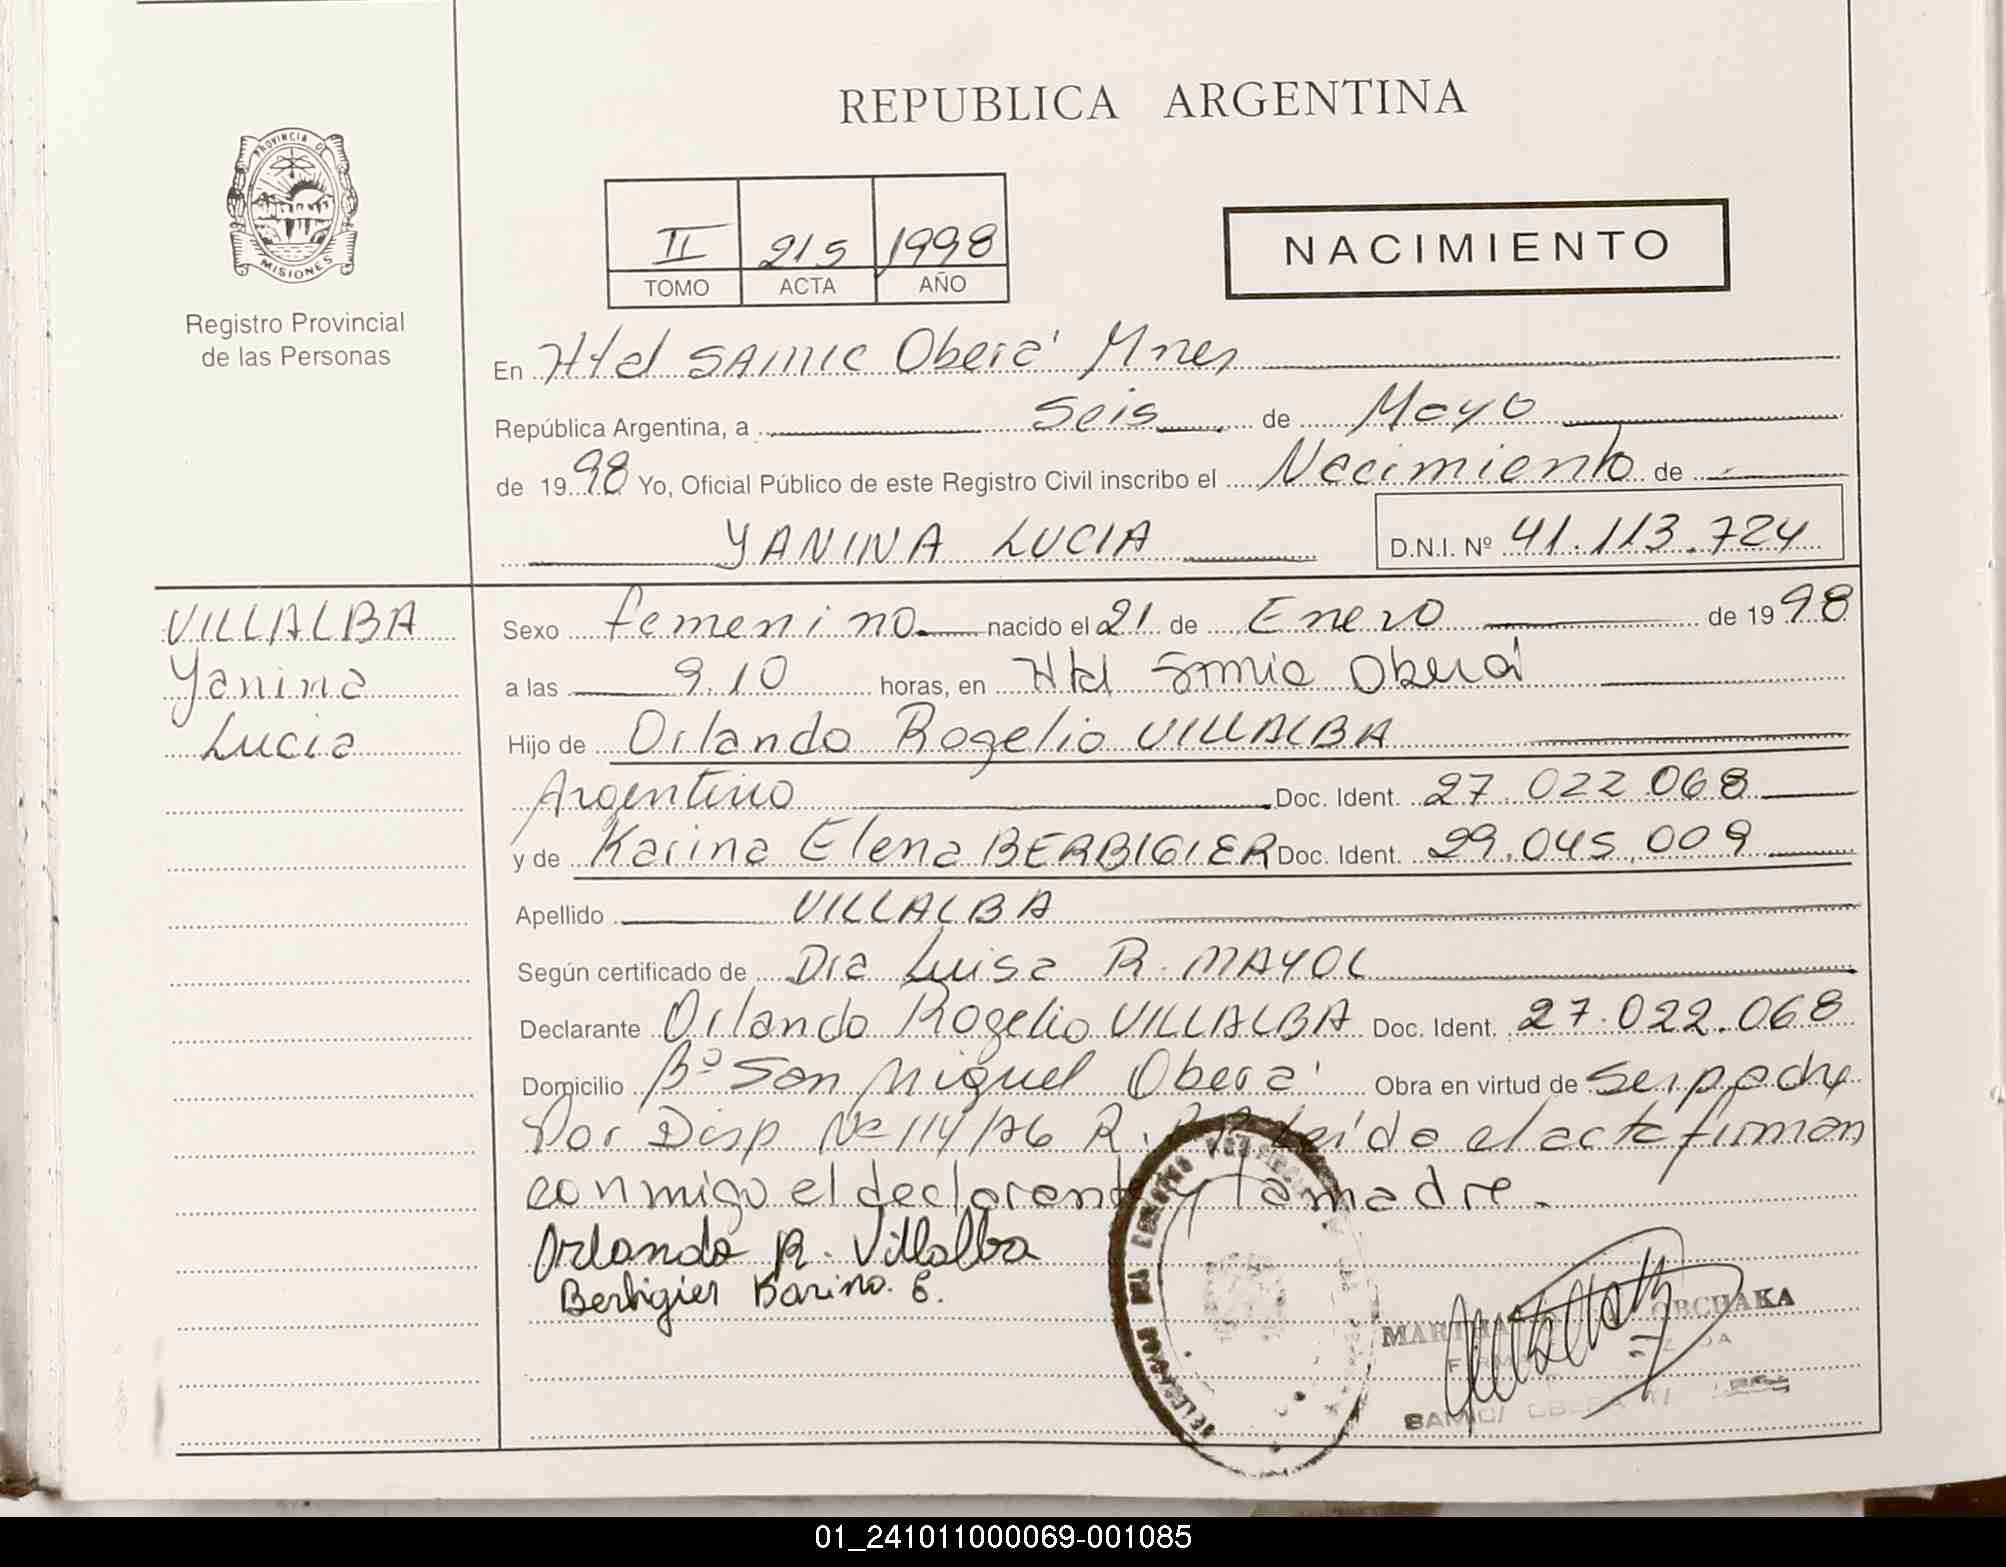 REPUBLICA ARGENTINA
PROVINCIA DE
MISIONES
Registro Provincial
de las Personas
II 215 1998
TOMO ACTA AÑO
NACIMIENTO
En Htal SAMIC Oberá Mnes
República Argentina, a Seis de Mayo
de 1998 Yo, Oficial Público de este Registro Civil inscribo el Nacimiento de
YANINA LUCIA D.N.I. Nº 41.113.724
VILLALBA
Yanina
Lucia
Sexo femenino nacido el 21 de Enero de 1998
a las 9.10 horas, en Htal Samic Oberá
Hijo de Orlando Rogelio VILLALBA
Argentino Doc. Ident. 27.022.068
y de Karina Elena BERBIGIER Doc. Ident. 29.045.009
Apellido VILLALBA
Según certificado de Dra Luisa R. MAYOL
Declarante Orlando Rogelio VILLALBA Doc. Ident. 27.022.068
Domicilio Bº San Miguel Oberá Obra en virtud de ser padre
Por Disp Nº 114/76 R. Leída el acta firman
conmigo el declarante y la madre.
Orlando R. Villalba
Berbigier Karina. E.
ORCHAKA
SAMIC/
01_241011000069-001085